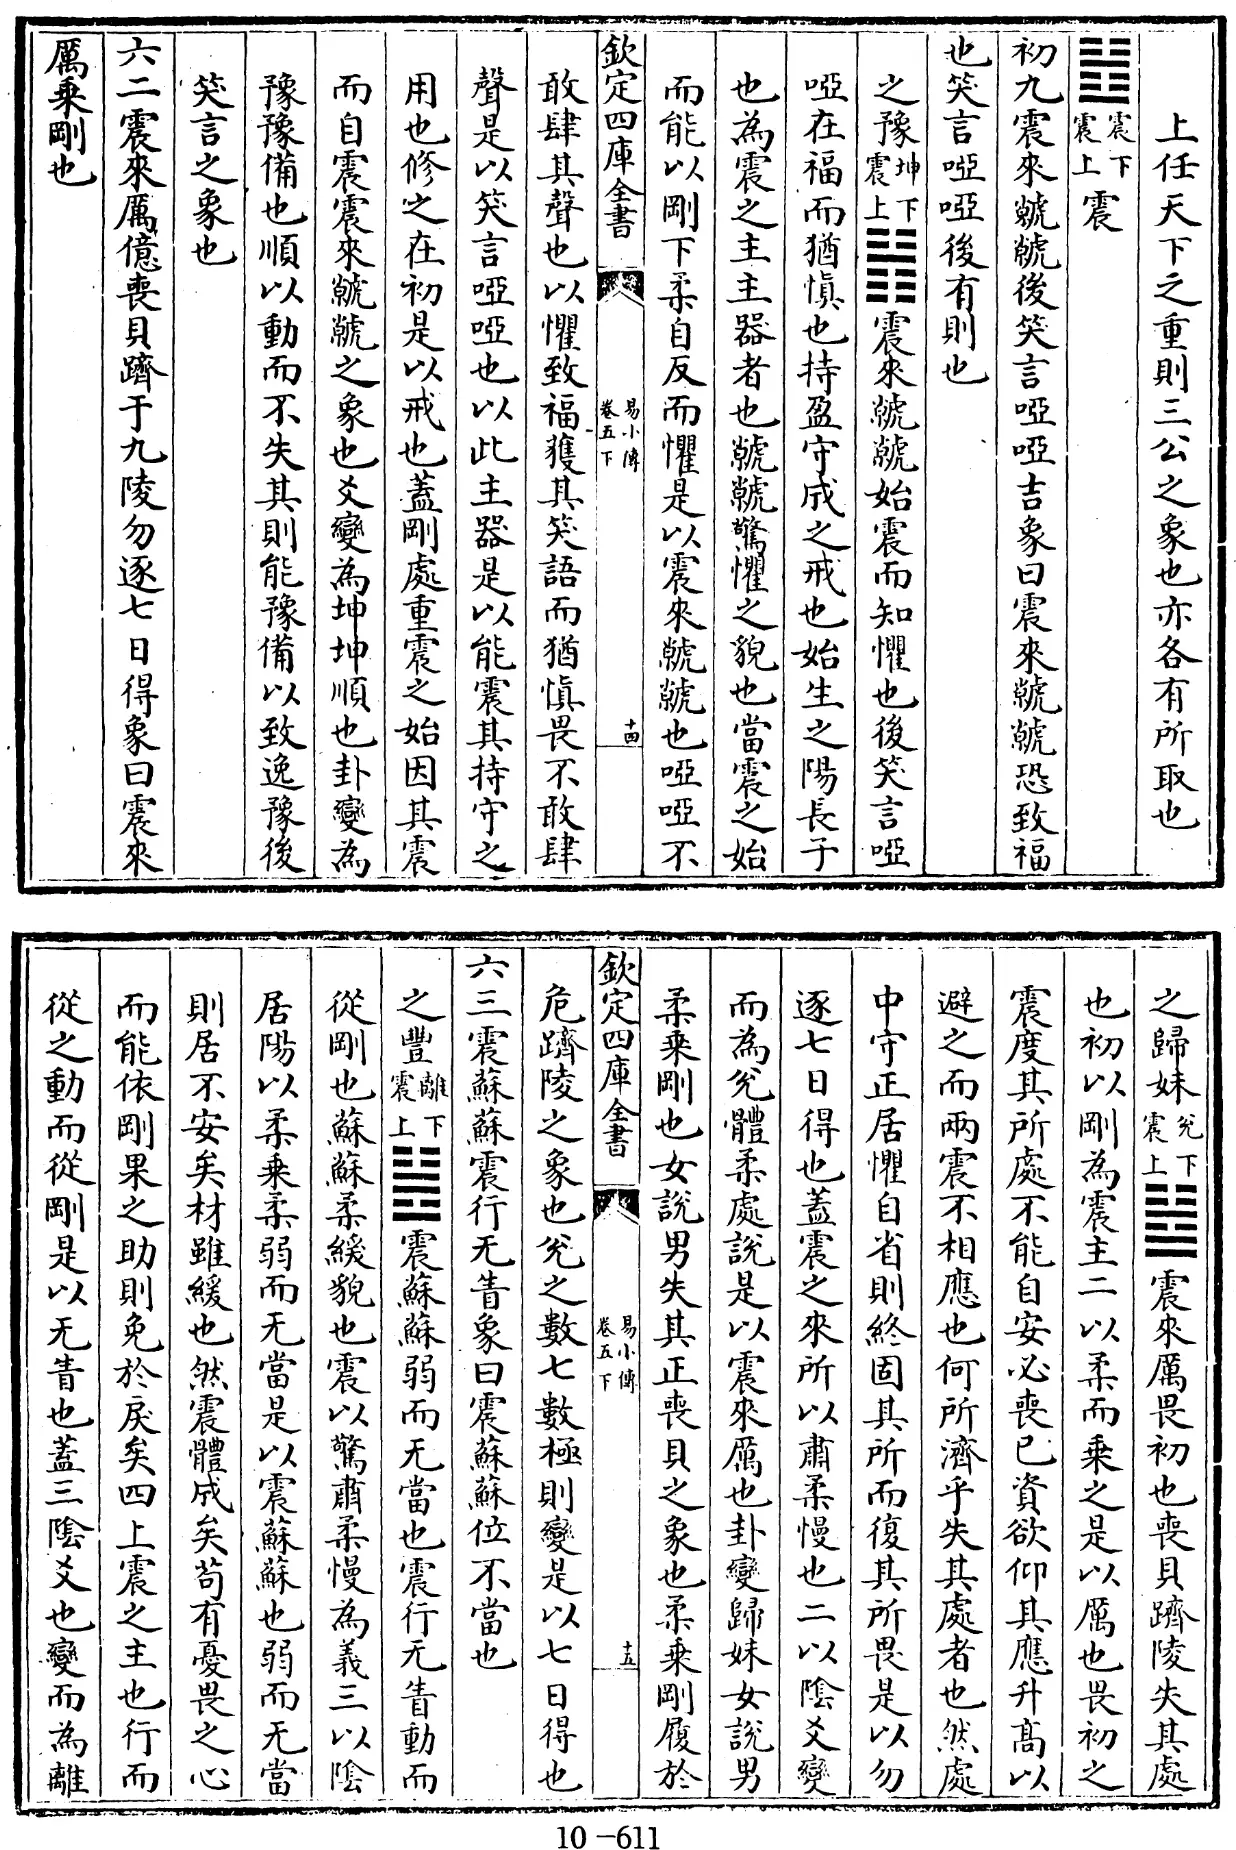 上任天下之重則三公之象也亦各有所取也
䷲震下震上震
初九震來虩虩後笑言啞啞吉象曰震來虩虩恐致福
也笑言啞啞後有則也
之豫坤下震上䷏震來虩虩始震而知懼也後笑言啞
啞在福而猶慎也持盈守成之戒也始生之陽長子
也為震之主主器者也虩虩驚懼之貌也當震之始
而能以剛下柔自反而懼是以震來虩虩也啞啞不
欽定四庫全書
易小傳
卷五下
十四
敢肆其聲也以懼致福獲其笑語而猶慎畏不敢肆
聲是以笑言啞啞也以此主器是以能震其持守之
用也修之在初是以戒也蓋剛處重震之始因其震
而自震震來虩虩之象也爻變為坤坤順也卦變為
豫豫備也順以動而不失其則能豫備以致逸豫後
笑言之象也
六二震來厲億喪貝躋于九陵勿逐七日得象曰震來
厲乗剛也
之歸妹兊下震上䷵震來厲畏初也喪貝躋陵失其處
也初以剛為震主二以柔而乗之是以厲也畏初之
震度其所處不能自安必喪已資欲仰其應升髙以
避之而兩震不相應也何所濟乎失其處者也然處
中守正居懼自省則終固其所而復其所畏是以勿
逐七日得也蓋震之來所以肅柔慢也二以陰爻變
而為兊體柔處說是以震來厲也卦變歸妹女說男
柔乗剛也女說男失其正喪貝之象也柔乗剛履於
欽定四庫全書
易小傳
卷五下
十五
危躋陵之象也兊之數七數極則變是以七日得也
六三震蘇蘇震行无眚象曰震蘇蘇位不當也
之豐離下震上䷶震蘇蘇弱而无當也震行无眚動而
從剛也蘇蘇柔緩貌也震以驚肅柔慢為義三以陰
居陽以柔乗柔弱而无當是以震蘇蘇也弱而无當
則居不安矣材雖緩也然震體成矣茍有憂畏之心
而能依剛果之助則免於戾矣四上震之主也行而
從之動而從剛是以无眚也蓋三陰爻也變而為離
10-611